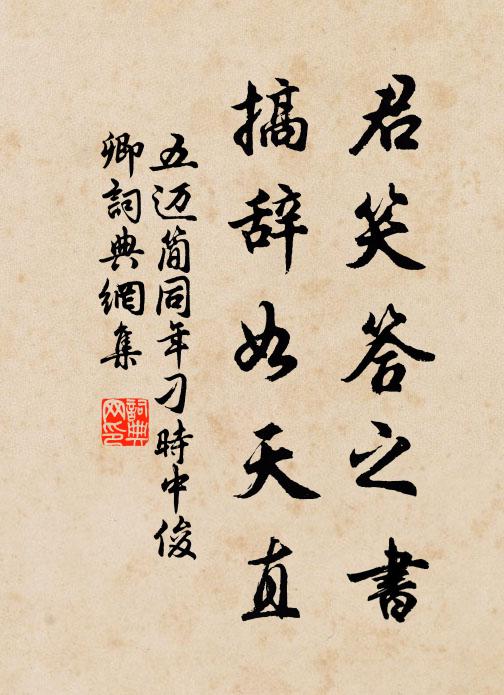 君笑答之書
搞辞如天直
五迈简同年刁時中俊
卿詞典網集
詞典
网印